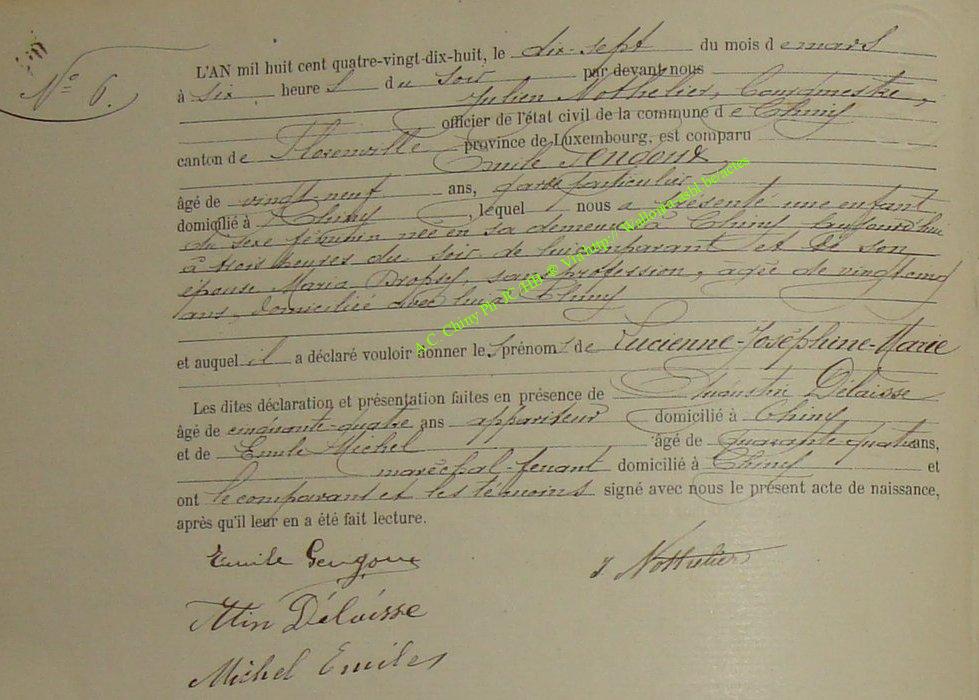 N° 6.
L'AN mil huit cent quatre-vingt-dix-huit, le dix-sept du mois de mars
à six heures du soir par devant nous
Julien Nothelier, Bourgmestre,
officier de l'état civil de la commune de Chiny
canton de Florenville province de Luxembourg, est comparu
Emile Gengoux
âgé de vingt neuf ans, garde particulier
domicilié à Chiny, lequel nous a présenté une enfant
du sexe féminin née en sa demeure à Chiny aujourd'hui
à trois heures du soir de lui comparant et de son
épouse Maria Dropsy, sans profession, âgée de vingt cinq
ans, domiciliée avec lui à Chiny
et auquel il a déclaré vouloir donner les prénoms de Lucienne-Joséphine-Marie
Les dites déclaration et présentation faites en présence de Augustin Délaisse
âgé de cinquante-quatre ans appariteur domicilié à Chiny
et de Emile Michel âgé de quarante quatre ans,
maréchal-ferrant domicilié à Chiny et
ont le comparant et les témoins signé avec nous le présent acte de naissance,
après qu'il leur en a été fait lecture.
Emile Gengoux
J. Nothelier
Atin Délaisse
Michel Emile
A.C. Chiny Ph JC/HH ® Via http://Wallonia.asbl.be/actes